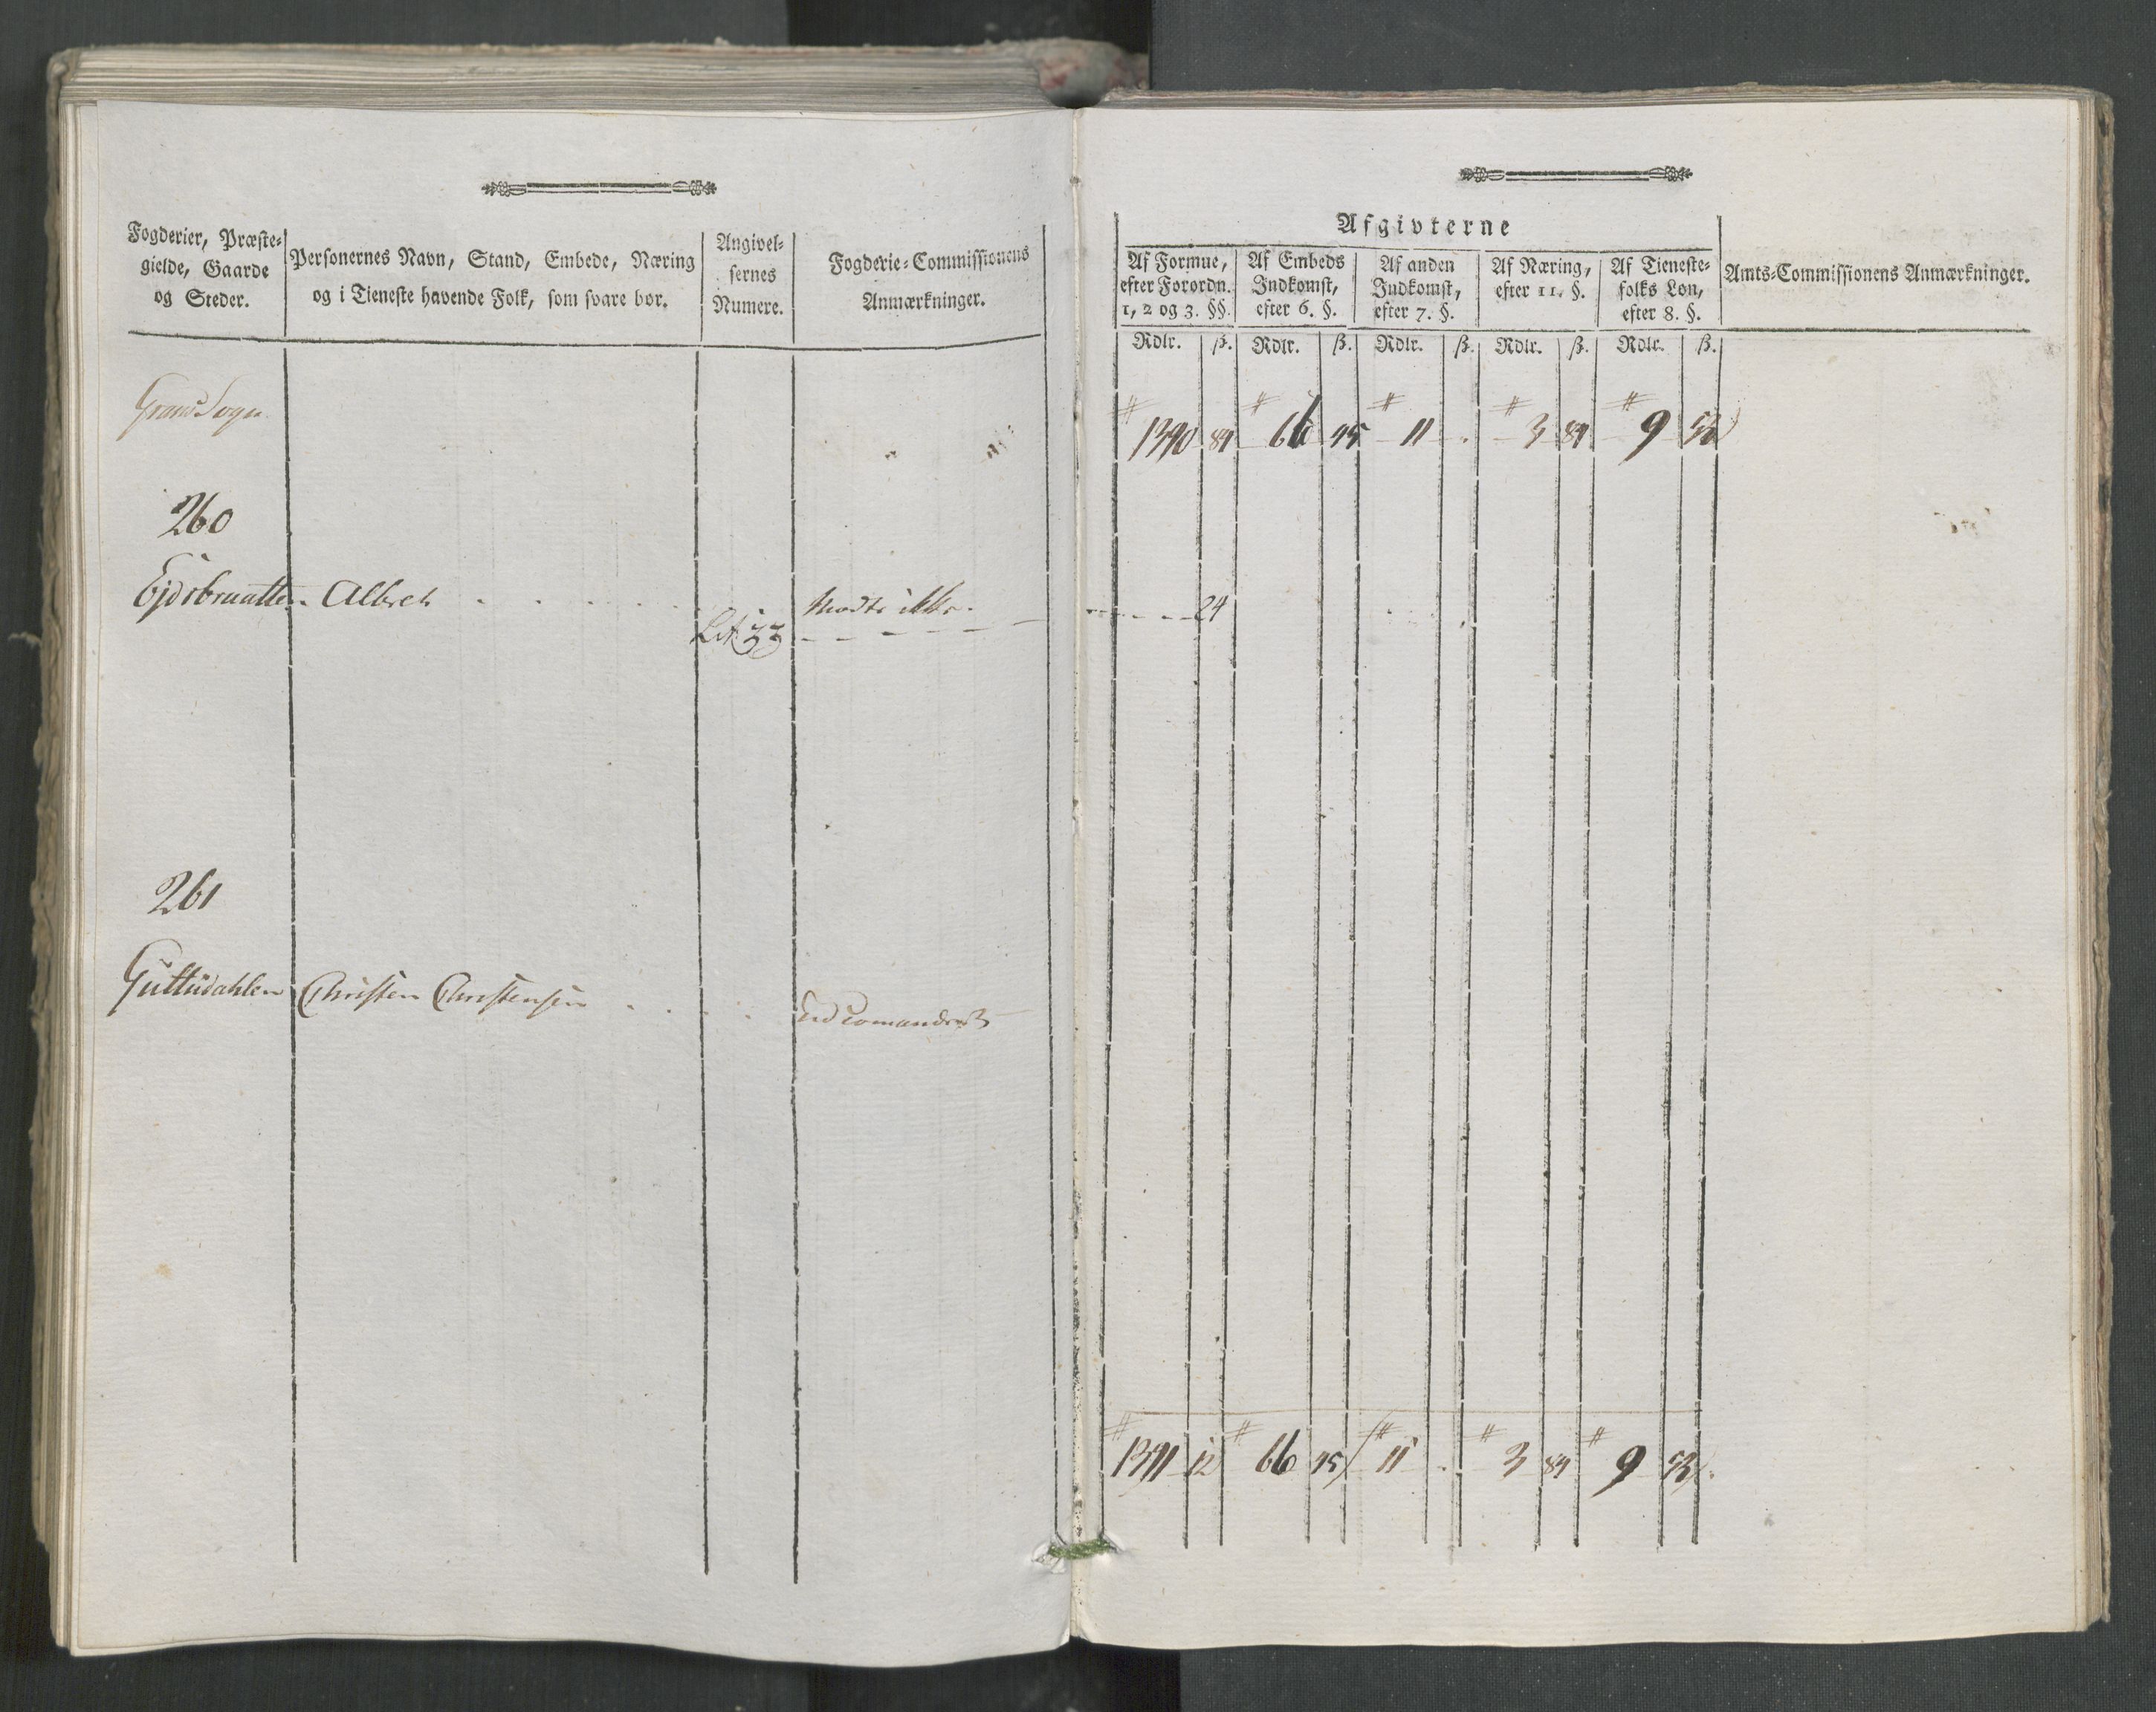 Fogderier, Præste-
gielde, Gaarde
og Steder.
Personernes Navn, Stand, Embede, Næring
og i Tieneste havende Folk, som svare bør.
Angivel-
sernes
Numere.
Fogderie-Commissionens
Anmærkninger.
Grans Sogn
260
Ejdsbraatten Albret
Lit zz
Modte ikke
261
Guttudahlen Christen Christensen
Afgivterne
Af Formue,
efter Forordn.
1, 2 og 3. §§.
Af Embeds
Indkomst,
efter 6. §.
Af anden
Indkomst,
efter 7. §.
Af Næring,
efter 11. §.
Af Tieneste-
folks Løn,
efter 8. §.
Amts-Commissionens Anmærkninger.
Rdlr. ß. Rdlr. ß. Rdlr. ß. Rdlr. ß. Rdlr. ß.
1390 84 66 95 11 . 3 84 9 53
24
1391 12 66 95 11 . 3 84 9 53